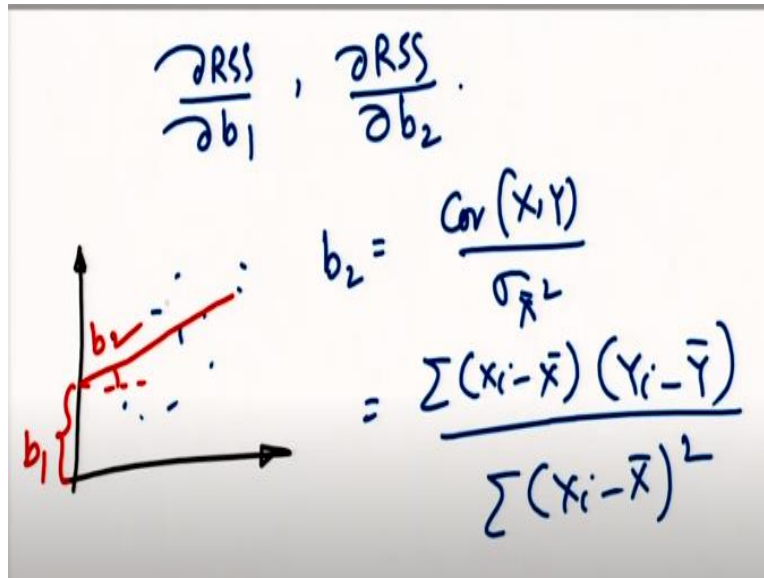 ∂RSS/∂b₁ , ∂RSS/∂b₂ .
b₂ = Cov(X,Y)/σ_x̄²
= Σ(xᵢ-x̄)(Yᵢ-Ȳ)/Σ(xᵢ-x̄)²
b₂
b₁